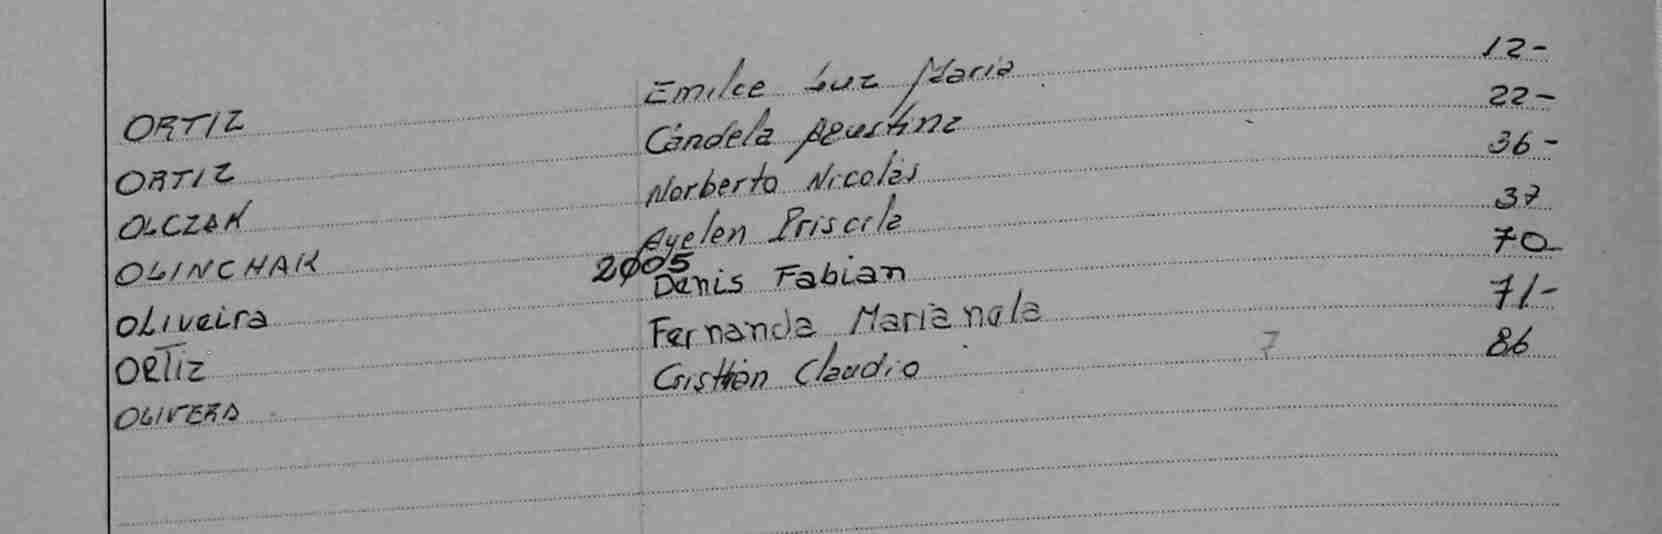 ORTIZ Emilce Luz Maria 12-
ORTIZ Candela Agustina 22-
OLCZAK Norberto Nicolás 36-
OLINCHAK Ayelen Priscila 37
2005
OLiveira Denis Fabian 70-
ORTIZ Fernanda Marianela 71-
OLIVERA Cristhian Claudio 7 86